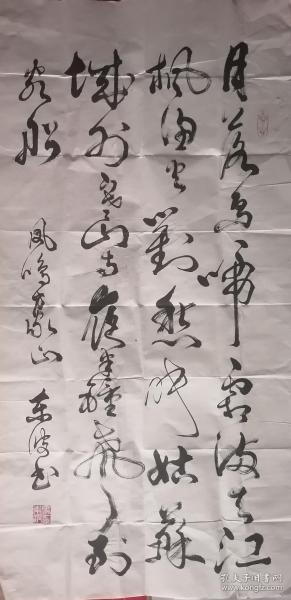 月落烏啼霜滿天江
楓漁火對愁眠姑蘇
城外寒山寺夜半鐘聲到
客船
鳳鳴象山 东波书
孔夫子旧书网